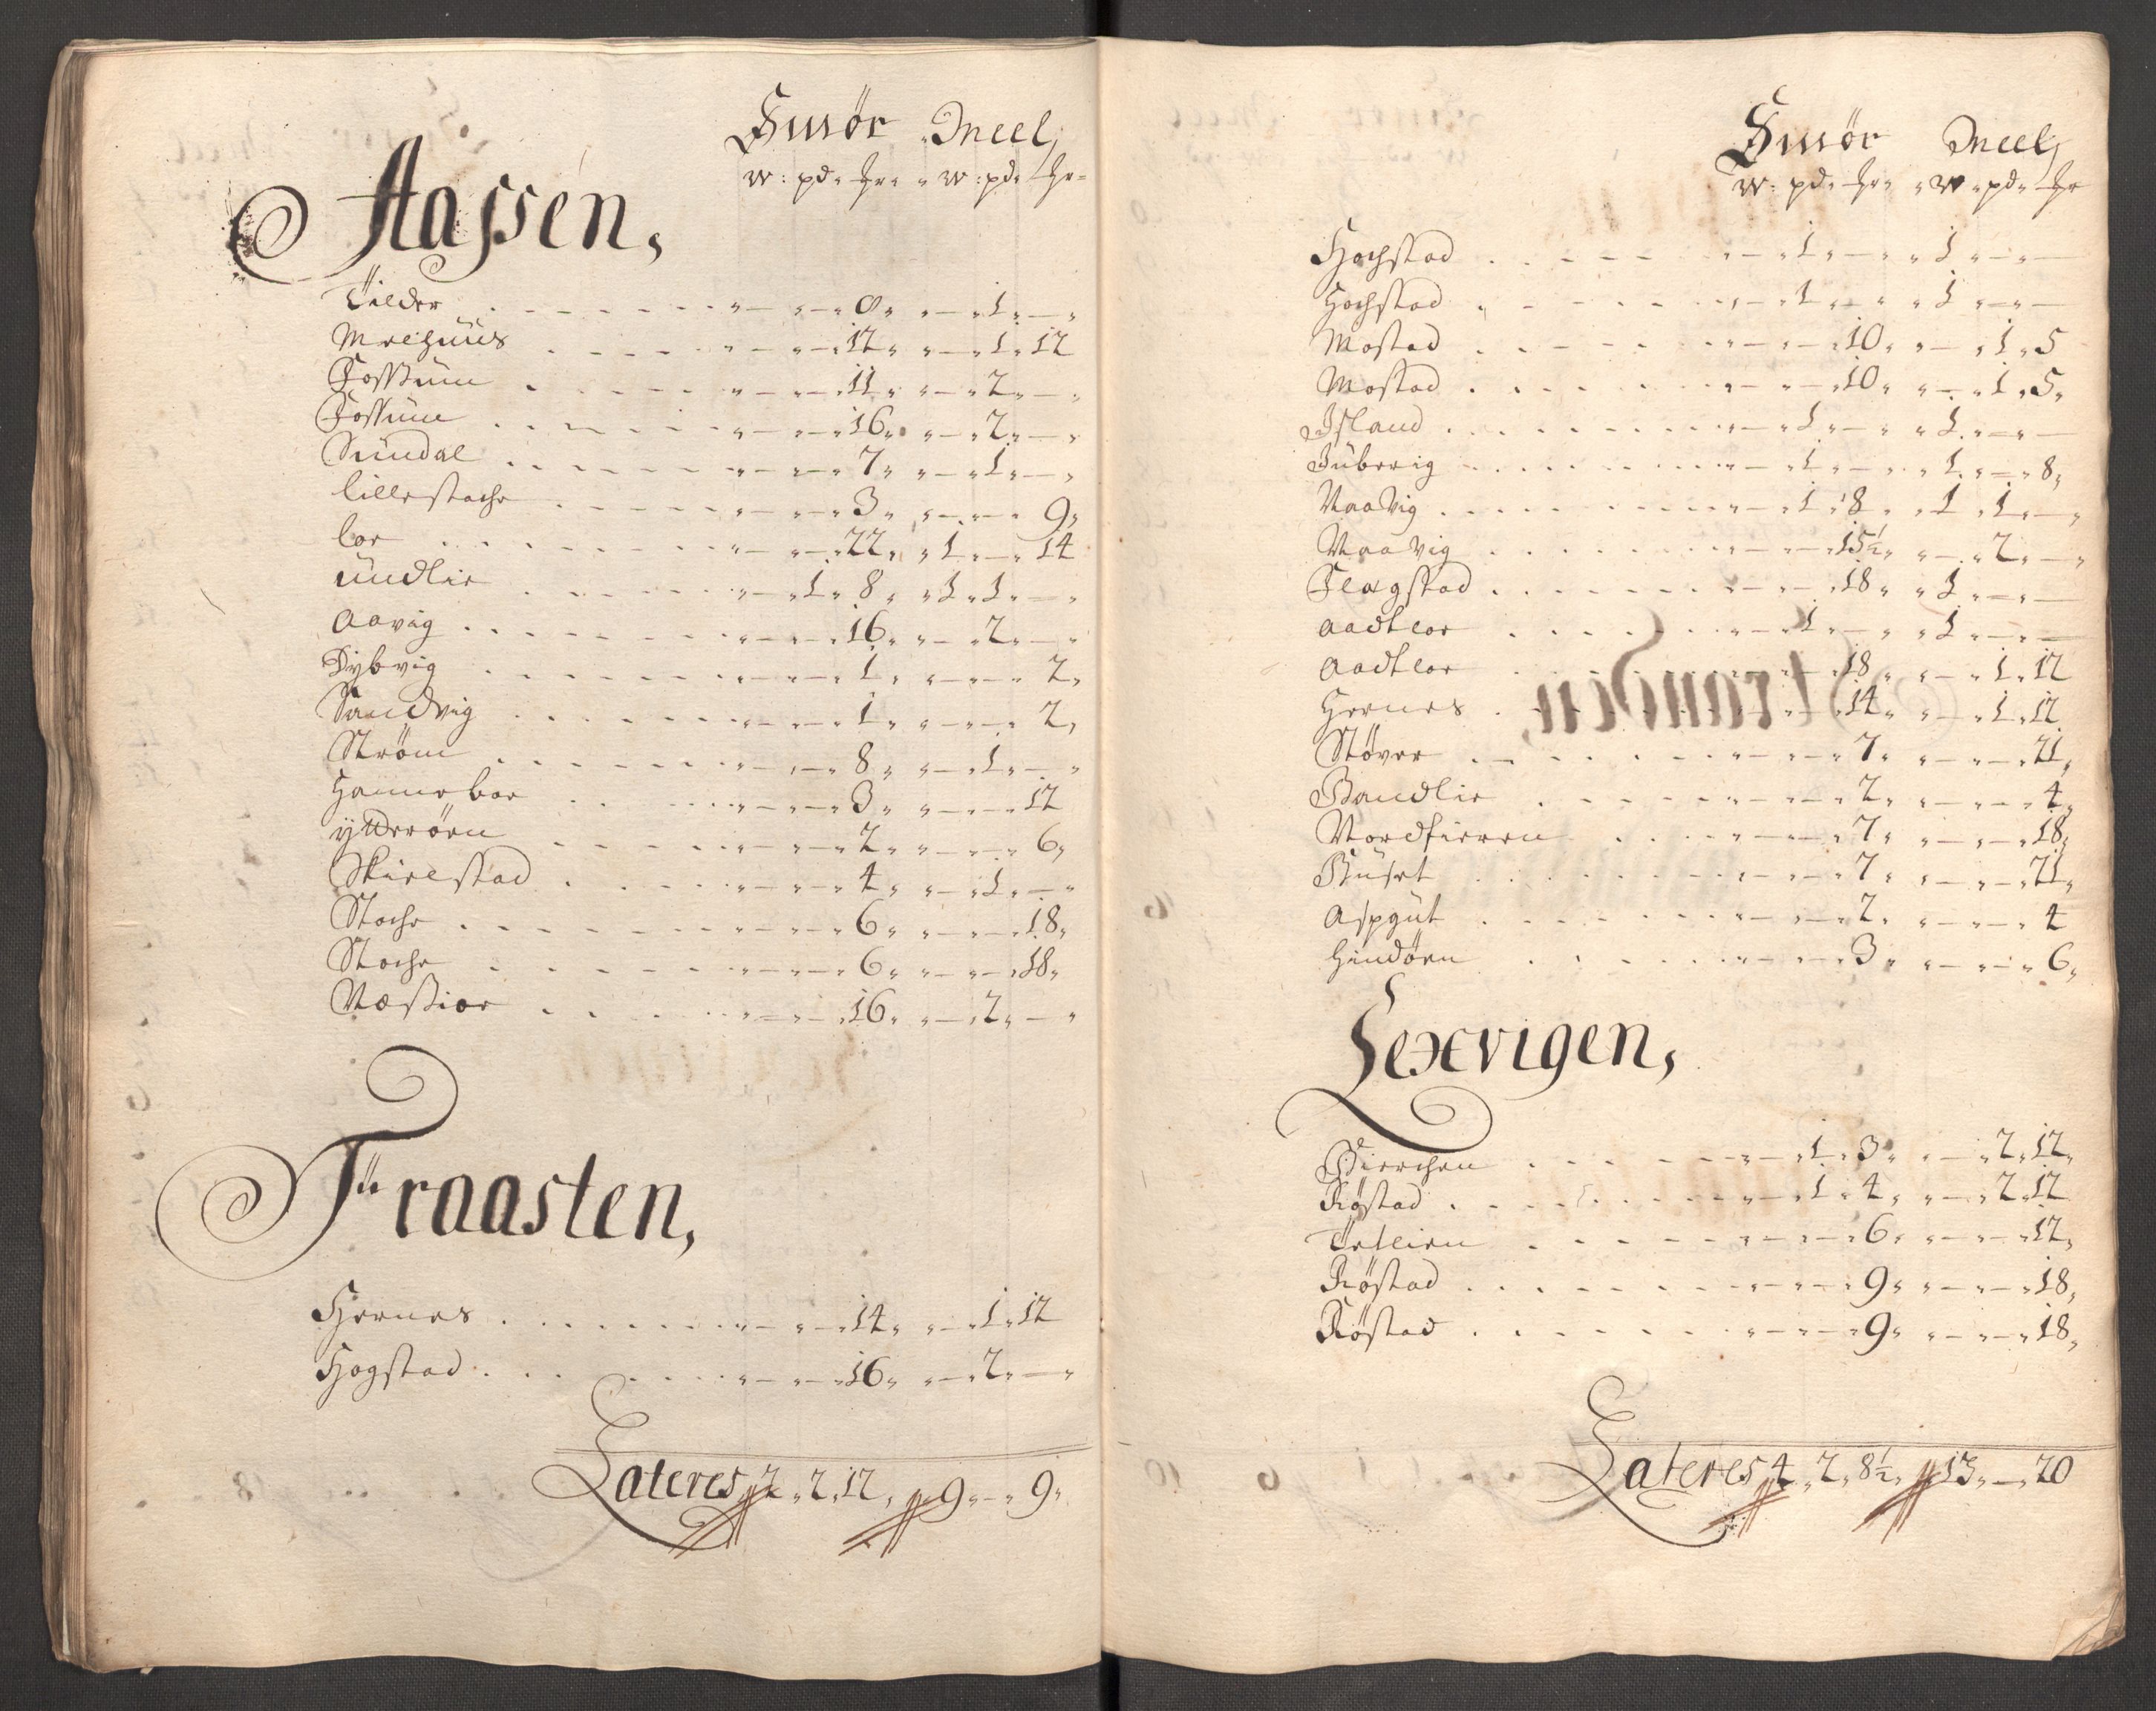 Smør Meel
w: pd. hr. w: pd. hr
Aassen,
Tilder 8 1
Meelhuus 12 1 12
Fossum 11 2
Fossum 16 2
Sundal 7 1
lillestache 3 9
loe 22 1 14
Undlie 1 8 1 1
Aavig 16 2
Dybvig 1 2
Sandvig 1 2
Strøm 8 1
Hammeboe 3 12
ytterøen 2 6
Skielstad 4 1
Stoche 6 18
Stoche 6 18
Væstioe 16 2
Fraasten,
Hernes 14 1 12
Hogstad 16 2
Lateres 2 2 12 9 9
Smør Meel
w: pd. hr. w. pd. hr
Hochstad 1 1
Hochstad 1 1
Mostad 10 1 5
Mostad 10 1 5
Island 1 1
Juberig 1 1 8
Vaavig 1 8 1 1
Vaavig 15½ 2
Flagstad 18 1
Aadtloe 1 1
Aadtloe 18 1 12
Hernes 14 1 12
Støver 7 21
Bandlie 2 4
Nordfieren 7 18
Buset 7 21
Aspgut 2 4
Hindøen 3 6
Lexvigen,
Bierchen 1 3 2 12
Røstad 1 4 2 12
Terleien 6 12
Røstad 9 18
Røstad 9 18
Lateres 4 2 8½ 13 20